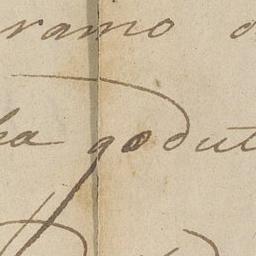 ramo
ha godut